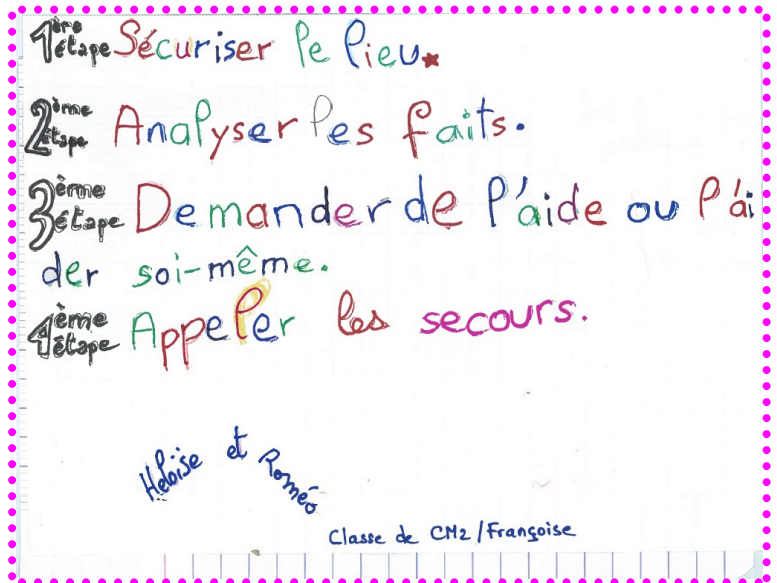 1ère étape Sécuriser le lieu.
2ème étape Analyser les faits.
3ème étape Demander de l'aide ou l'ai
der soi-même.
4ème étape Appeler les secours.
Héloïse et Roméo
Classe de CM2 / Françoise